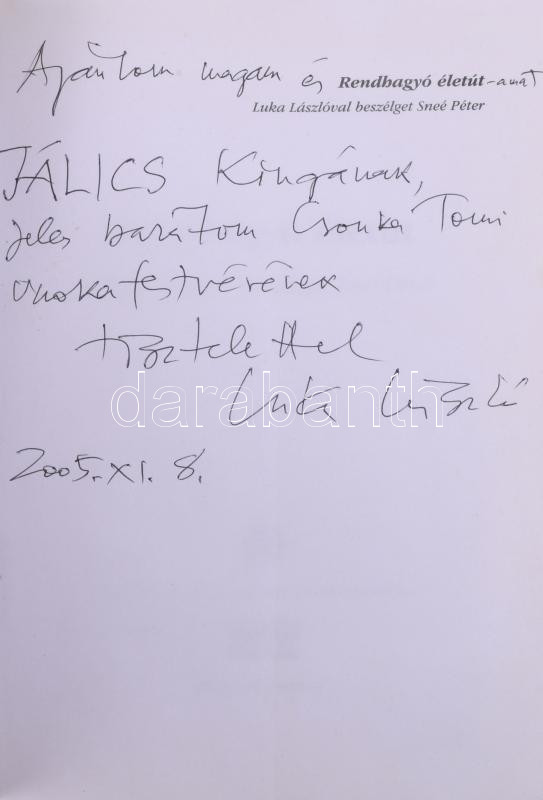 Ajánlom magam és Rendhagyó életút-amat
Luka Lászlóval beszélget Sneé Péter
JÁLICS Kingának,
jeles barátom Csonka Tomi
unokafestvérének
tisztelettel
Luka László
darabanth
2005. XI. 8.